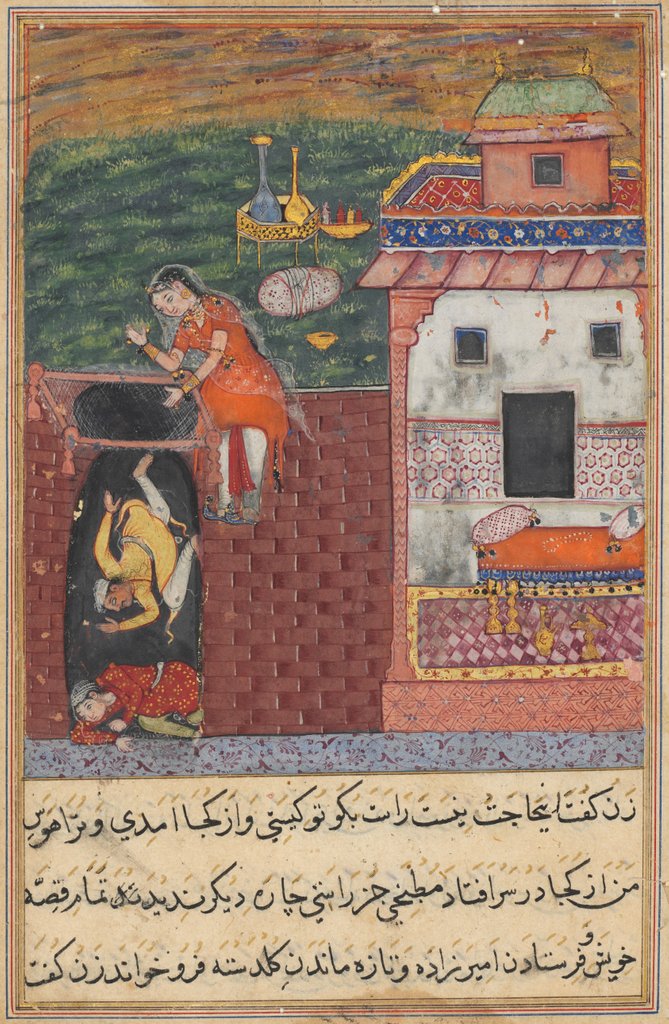 زن گفت اینجا حجت نیست راست بگو تو کیستی و از کجا امدی و ترا هوس
من از کجا در سر افتاد مطبخی جز راستی چاره دیگر ندیدند تمام قصه
خویش و فرستادن امیرزاده و تازه ماندن گلدسته فرو خواند زن گفت